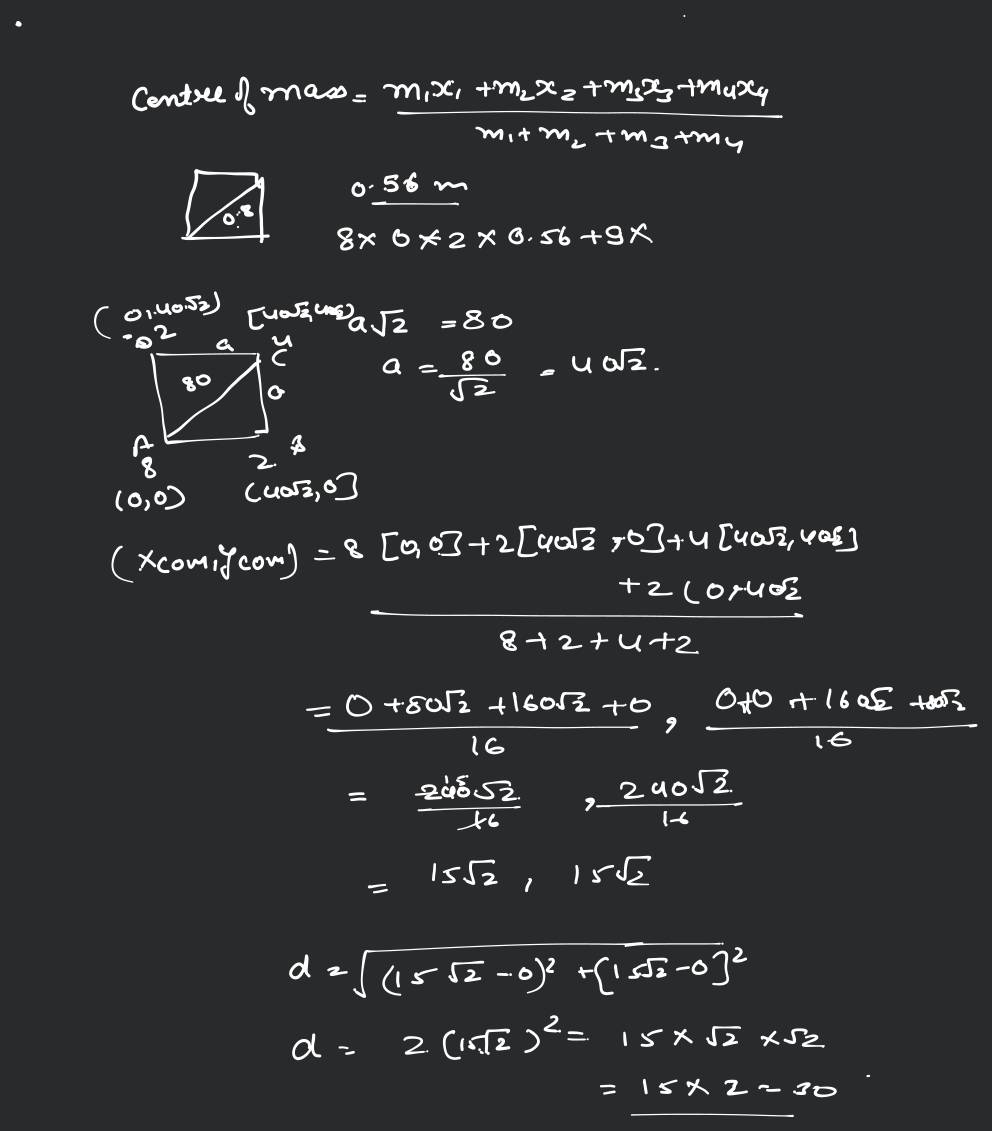 Centre of mass = m₁x₁ + m₂x₂ + m₃x₃ + m₄x₄
m₁ + m₂ + m₃ + m₄
0.56 m
0.8
8 × 0 × 2 × 0.56 + 9 ×
(0, 40√2)
a√2 = 80
2 a 4
C
a = 80/√2 = 40√2.
80
a
A
8 2
(0,0) (40√2, 0]
(xcom, ycom) = 8 [0, 0] + 2 [40√2, 0] + 4 [40√2, 40√2]
+ 2 (0, 40√2
8 + 2 + 4 + 2
= 0 + 80√2 + 160√2 + 0 , 0 + 0 + 160√2 + 80√2
16 16
= 240√2 , 240√2
15
16 16
= 15√2 , 15√2
d = √(15√2 - 0)² + [15√2 - 0]²
d = 2 (15√2)² = 15 × √2 × √2
= 15 × 2 = 30